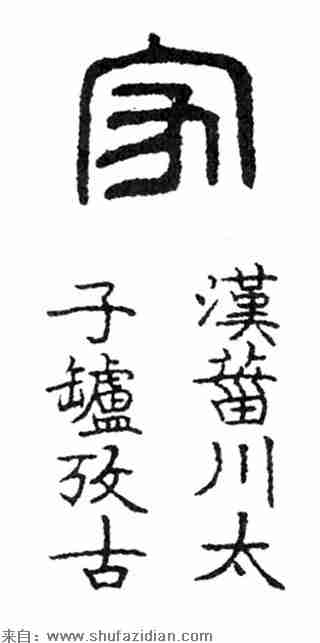 家
漢菑川太
子罏攷古
来自：www.shufazidian.com